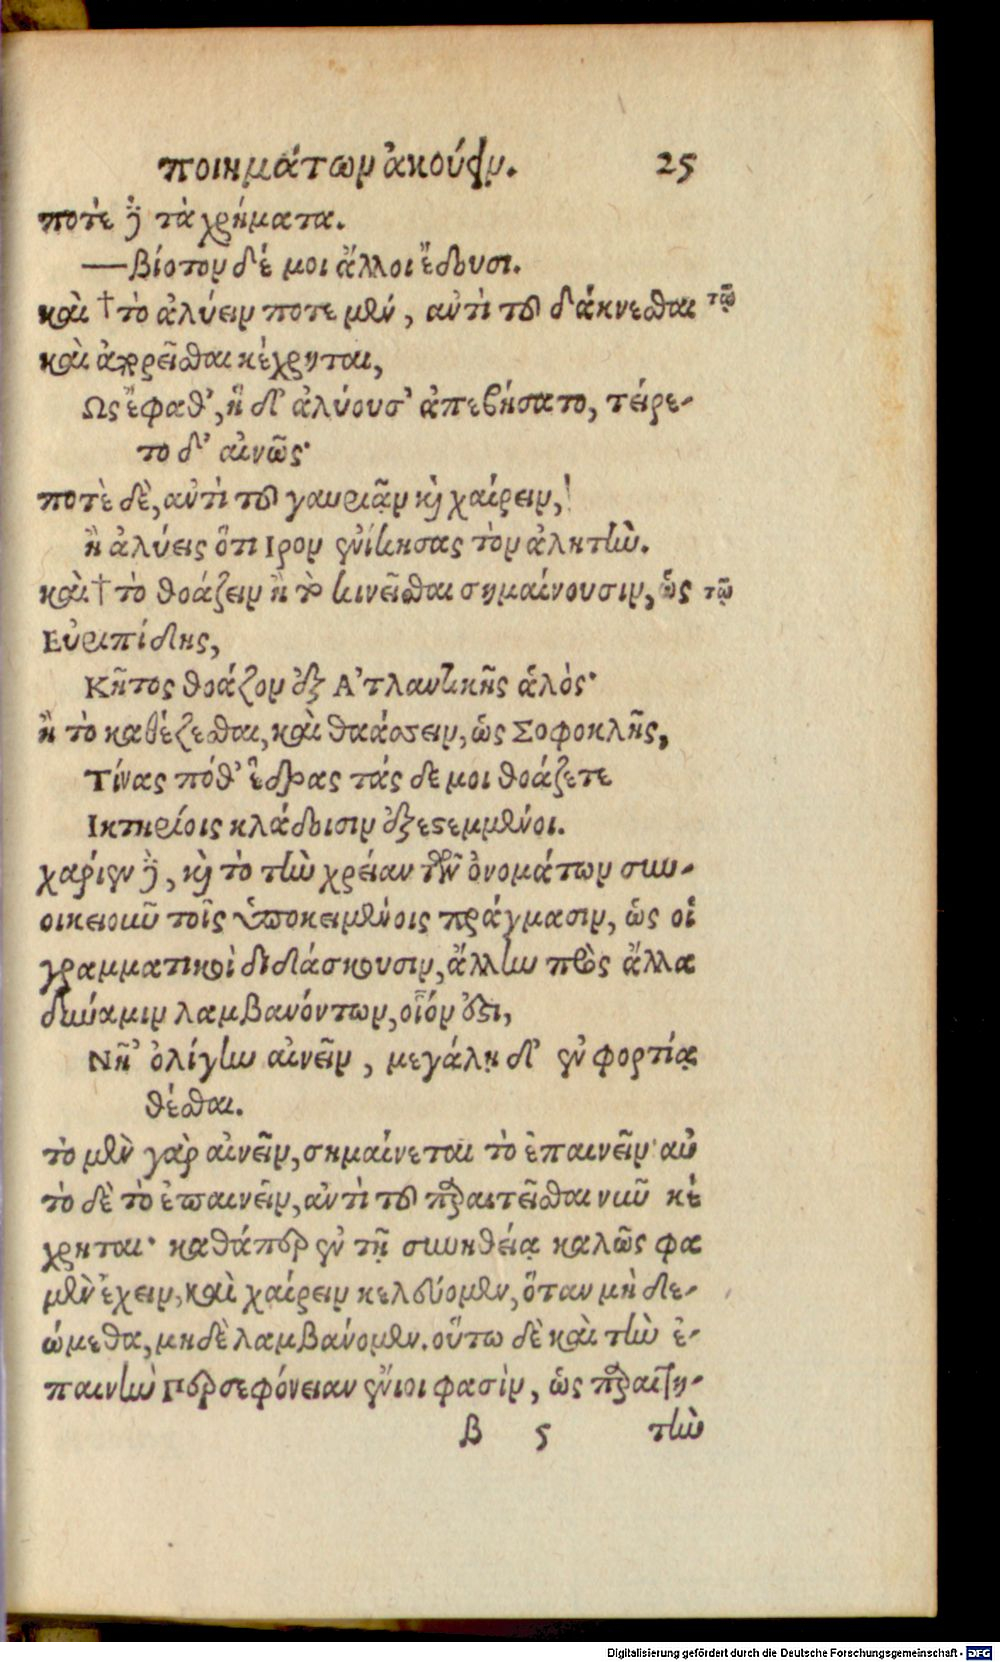 ποιημάτων ἀκούειν. 25
ποτὲ δὲ τὰ χρήματα.
— βίοτον δέ μοι ἄλλοι ἔδουσι.
καὶ † τὸ ἀλύειν ποτε μὲν, ἀντὶ τοῦ δάκνεσθαι τῷ
καὶ ἀπορεῖσθαι κέχρηται,
Ως ἔφαθ', ἡ δ' ἀλύουσ' ἀπεβήσατο, τείρε-
το δ' αἰνῶς·
ποτὲ δὲ, ἀντὶ τοῦ γαυριᾷν καὶ χαίρειν,
ἢ ἀλύεις ὅτι Ιρον ἐνίκησας τὸν ἀλητίω.
καὶ † τὸ θοάζειν ἢ τὸ κινεῖσθαι σημαίνουσιν, ὡς τῷ
Εὐριπίδης,
Κῆτος θοάζον ἐξ Α'τλαντικῆς ἁλὸς·
ἢ τὸ καθέζεσθαι, καὶ θαάσσειν, ὡς Σοφοκλῆς,
Τίνας πόθ' ἕδρας τάς δε μοι θοάζετε
Ικτηρίοις κλάδοισιν ἐξεστεμμένοι.
χαρίεν δὲ, καὶ τὸ τὴν χρέιαν τῶν ὀνομάτων συν-
οικειοῦν τοῖς ὑποκειμένοις πράγμασιν, ὡς οἱ
γραμματικοὶ διδάσκουσιν, ἄλλην πρὸς ἄλλα
δύναμιν λαμβανόντων, οἷόν ἐστι,
Νῆ' ὀλίγην αἰνεῖν, μεγάλῃ δ' ἐν φορτίᾳ
θέσθαι.
τὸ μὲν γὰρ αἰνεῖν, σημαίνεται τὸ ἐπαινεῖν· αὐ
τὸ δὲ τὸ ἐπαινεῖν, ἀντὶ τοῦ παραιτεῖσθαι νῦν κέ
χρηται· καθάπερ ἐν τῇ συνηθείᾳ καλῶς φα
μὲν ἔχειν, καὶ χαίρειν κελεύομεν, ὅταν μὴ δε-
ώμεθα, μηδὲ λαμβάνομεν. οὕτω δὲ καὶ τὴν ἐ-
παινὴν Περσεφόνειαν ἔνιοι φασὶν, ὡς παραιτη-
B 5 τὴν
Digitalisierung gefördert durch die Deutsche Forschungsgemeinschaft - DFG